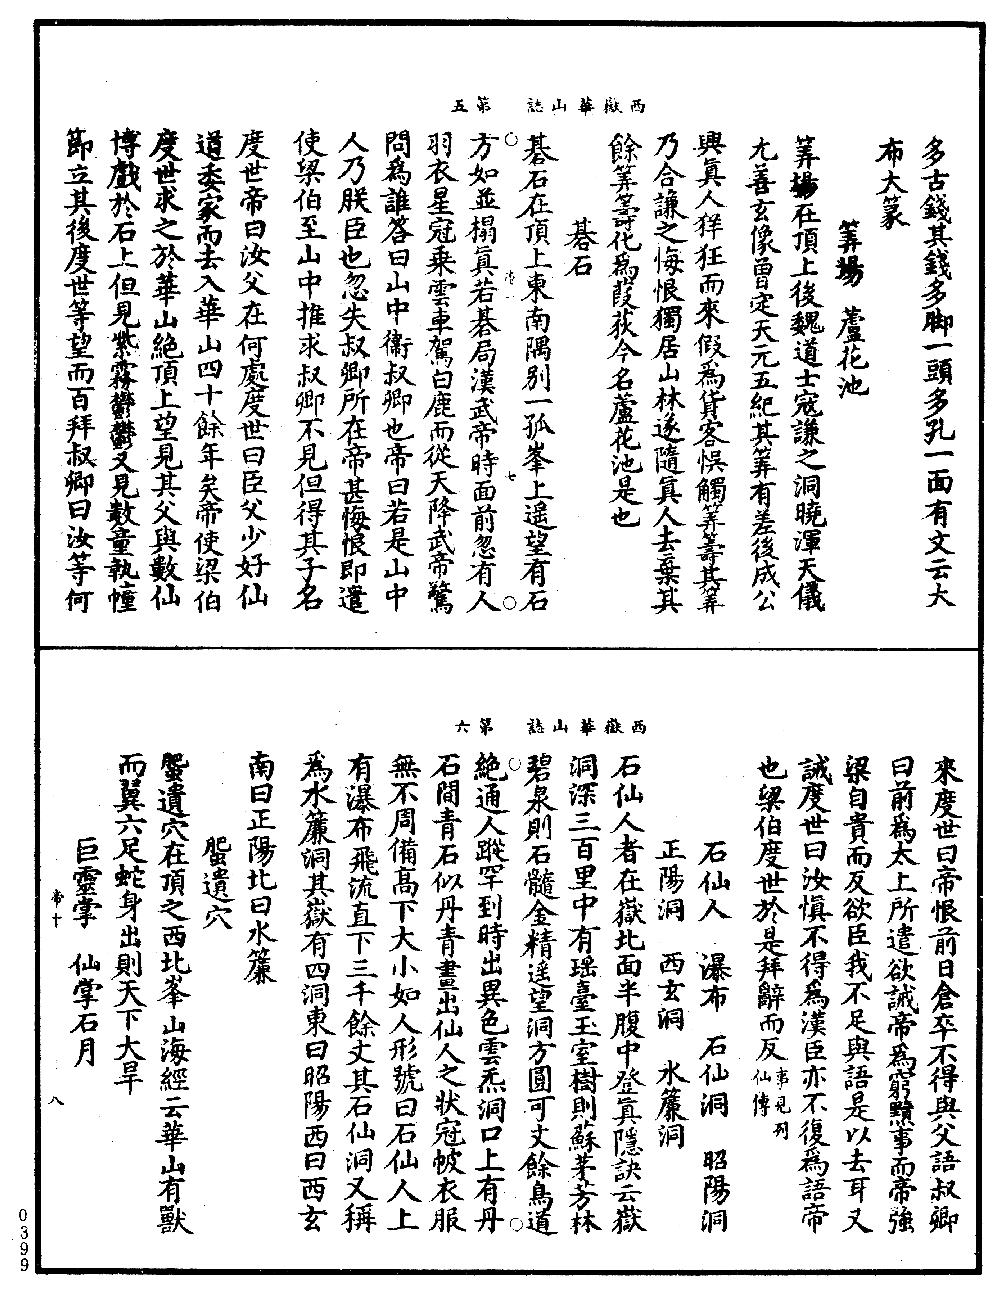 西嶽華山誌　第五
多古錢其錢多脚一頭多孔一面有文云大
布大篆
筭場　蘆花池
筭場在頂上後魏道士寇謙之洞曉渾天儀
尤善玄像曾定天元五紀其筭有差後成公
興眞人徉狂而來假爲貨客悞觸筭籌其筭
乃合謙之悔恨獨居山林遂隨眞人去棄其
餘筭籌化爲葭荻今名蘆花池是也
碁石
碁石在頂上東南隅別一孤峯上遥望有石
方如並榻眞若碁局漢武帝時面前忽有人
羽衣星冠乗雲車駕白鹿而從天降武帝驚
問爲誰答曰山中衞叔卿也帝曰若是山中
人乃朕臣也忽失叔卿所在帝甚悔恨即遣
使梁伯至山中推求叔卿不見但得其子名
度世帝曰汝父在何處度世曰臣父少好仙
道委家而去入華山四十餘年矣帝使梁伯
度世求之於華山絶頂上望見其父與數仙
博戲於石上但見紫霧鬱鬱又見數童執幢
節立其後度世等望而百拜叔卿曰汝等何
七
西嶽華山誌　第六
來度世曰帝恨前日倉卒不得與父語叔卿
曰前爲太上所遣欲誡帝爲窮黷事而帝強
梁自貴而反欲臣我不足與語是以去耳又
誡度世曰汝慎不得爲漢臣亦不復爲語帝
也梁伯度世於是拜辭而反事見列仙傳
石仙人　瀑布　石仙洞　昭陽洞
正陽洞　西玄洞　水簾洞
石仙人者在嶽北面半腹中登眞隱訣云嶽
洞深三百里中有瑶臺玉室樹則蘇茅芳林
碧泉則石髓金精遥望洞方圓可丈餘鳥道
絶通人蹤罕到時出異色雲炁洞口上有丹
石間青石似丹青畫出仙人之狀冠帔衣服
無不周備高下大小如人形號曰石仙人上
有瀑布飛流直下三千餘丈其石仙洞又稱
爲水簾洞其嶽有四洞東曰昭陽西曰西玄
南曰正陽北曰水簾
𧔥遺穴
𧔥遺穴在頂之西北峯山海經云華山有獸
而翼六足蛇身出則天下大旱
巨靈掌　仙掌石月
帝十
八
0399